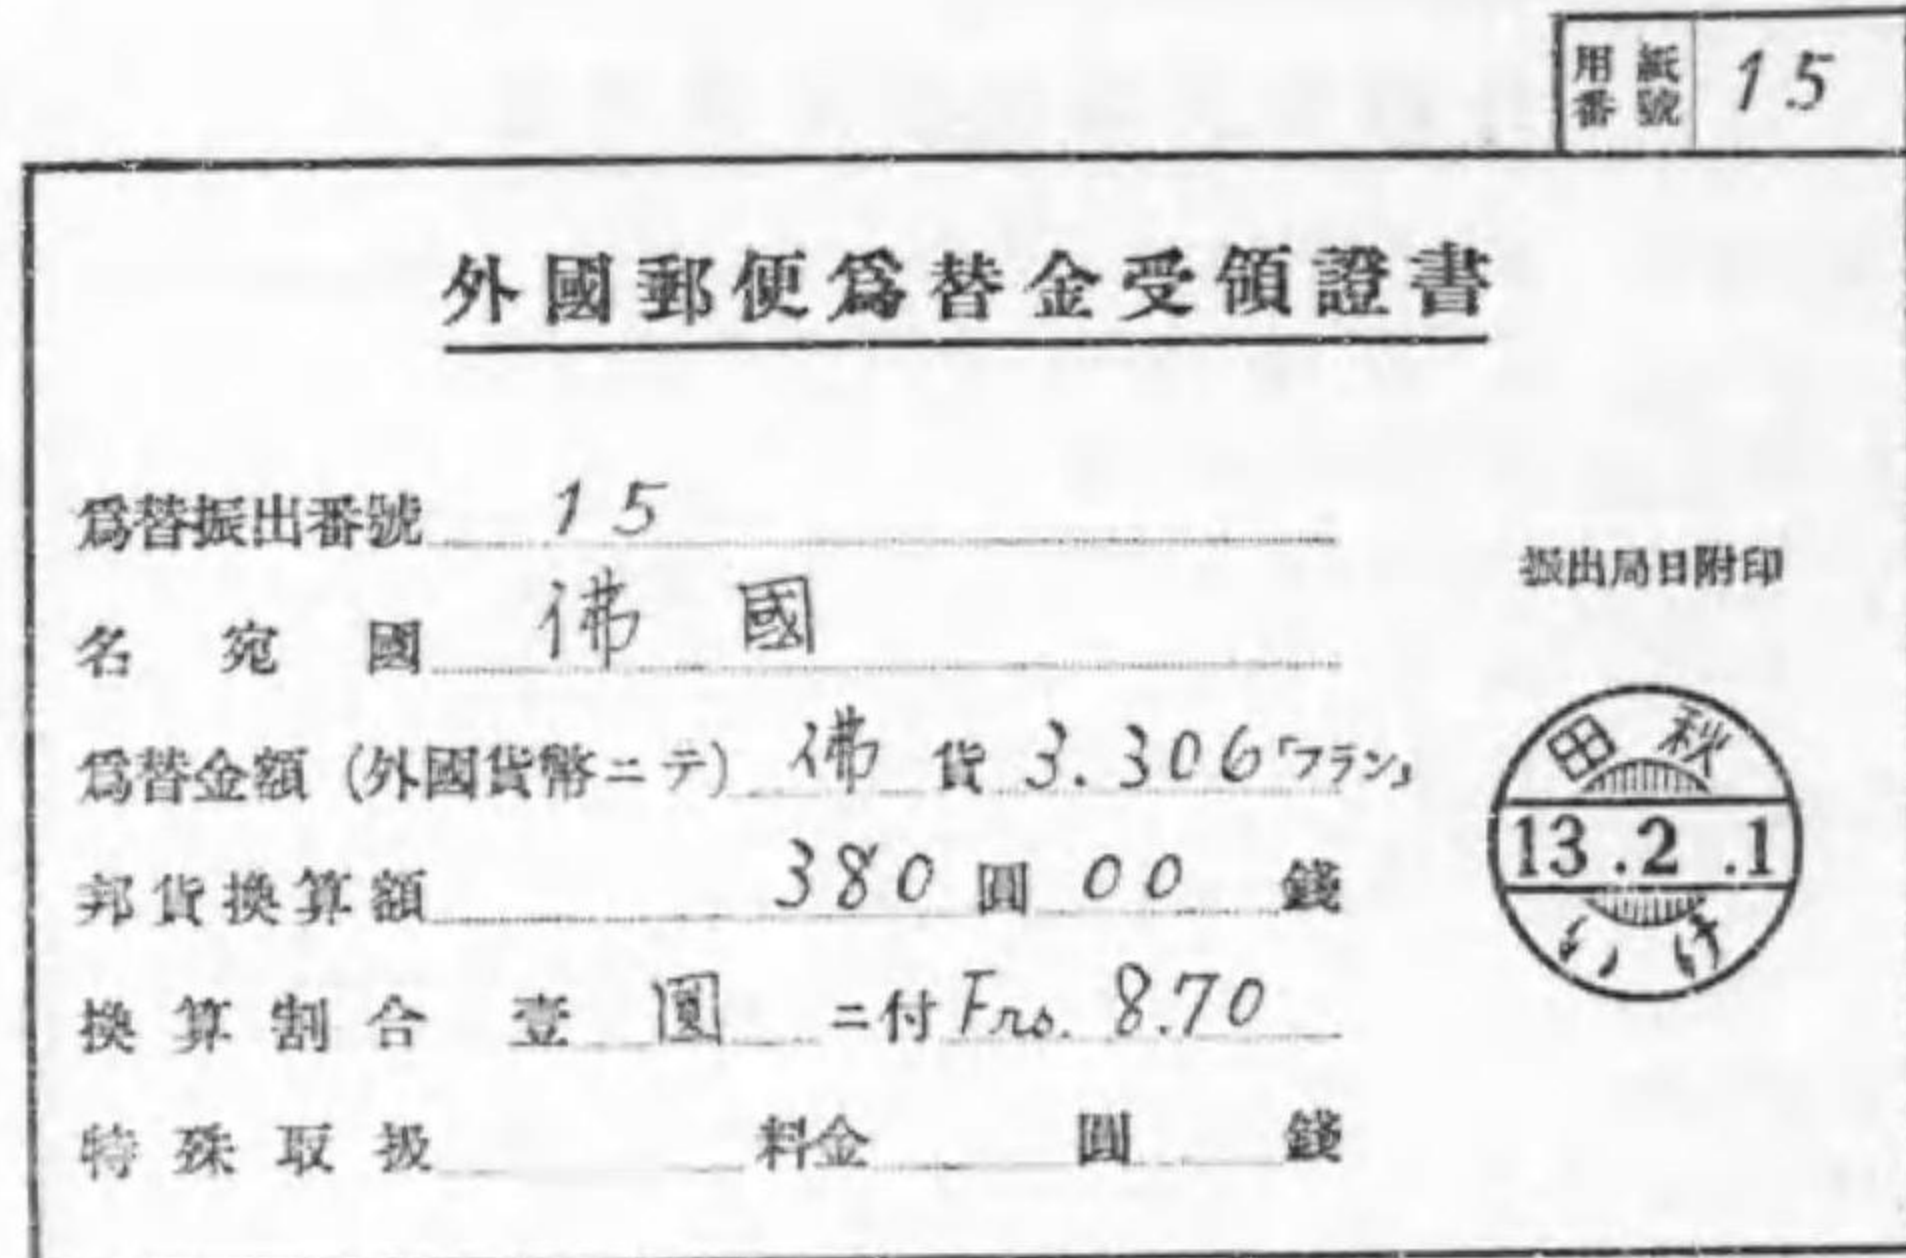 用紙番號 15
外國郵便爲替金受領證書
爲替振出番號 15
名宛國 佛國
爲替金額 (外國貨幣ニテ) 佛貨 3.306「フラン」
邦貨換算額 380圓00錢
換算割合 壹圓ニ付 Frs. 8.70
特殊取扱 料金 圓 錢
振出局日附印
田秋
13.2.1